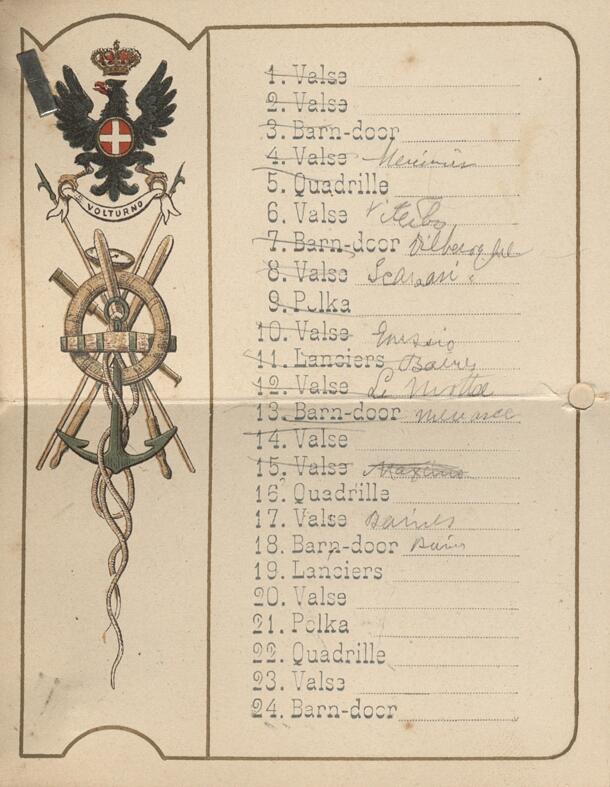 VOLTURNO
1. Valse
2. Valse
3. Barn-door
4. Valse
5. Quadrille
6. Valse Viterbo
7. Barn-door
8. Valse
9. Polka
10. Valse
11. Lanciers
12. Valse La Motta
13. Barn-door Menasce
14. Valse
15. Valse
16. Quadrille
17. Valse Baines
18. Barn-door
19. Lanciers
20. Valse
21. Polka
22. Quadrille
23. Valse
24. Barn-door